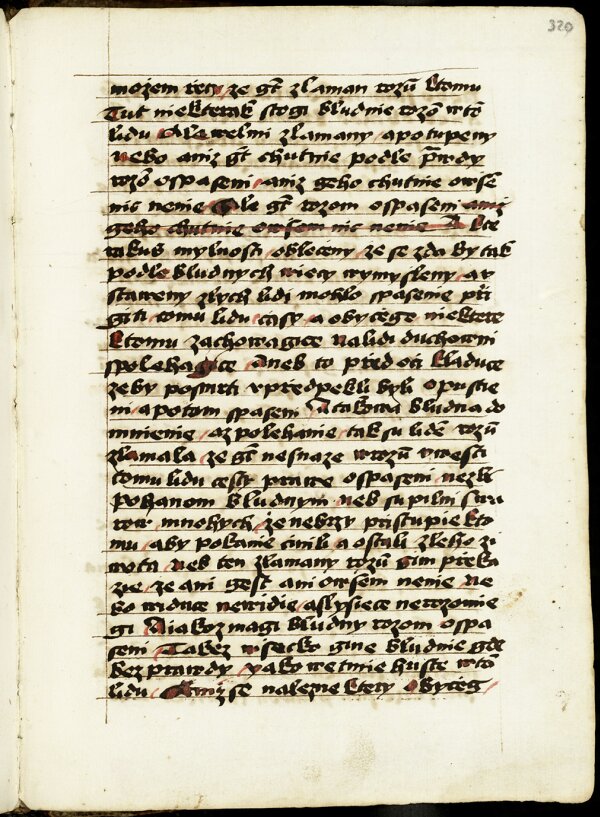 320
možem rzecy, ze gt zlaman rozū ktomu
Tut niekterak stogi bludnie rozō wtō
lidu Ale welmi zlamany, apotupeny
Nebo aniz gt chutnie podle prawdy
rozō ospaseni, aniz geho chutnie owsē
nic nenie Ale gt rozom ospaseni aniz
geho chutnie owsem nic nenie A kte
rakus mylnosti obloceny, ze se zda by tak
podle bludnych wiecy wymysleny, aw
staweny zlych lidi mohlo spasenie prži
giti tomu lidu, casy, a obycege niektere
ktomu zachowagice nalidi duchowni
spolehagice Aneb to przed oci kladuce
zeby posmrti vprzedpekli byli opustie
ni, apotom spaseni A takowa bludna do
mnienie, azpolehanie, tak su lidē rozū
zlamala, ze gt nesnaze wrozū vwesti
tomu lidu cesty prawe ospaseni, nezli
pohanom bludnym, neb su pilni
mnohych, ze nebrzy pristupie kto
mu, aby pokanie cinili a ostali zleho zi
wota, neb ten zlamany rozū gim prieka
zie, ze ani gest ani owsem nenie, ne
bo widuce newidie, aslysiece nerozomie
gi Aiakoz magi bludny rozom ospa
seni, Takez wsecko gine bludnie gde
bez prawdy, yako wetmie huste wtō
lidu, Aniz se nalezne ktery obyceg,